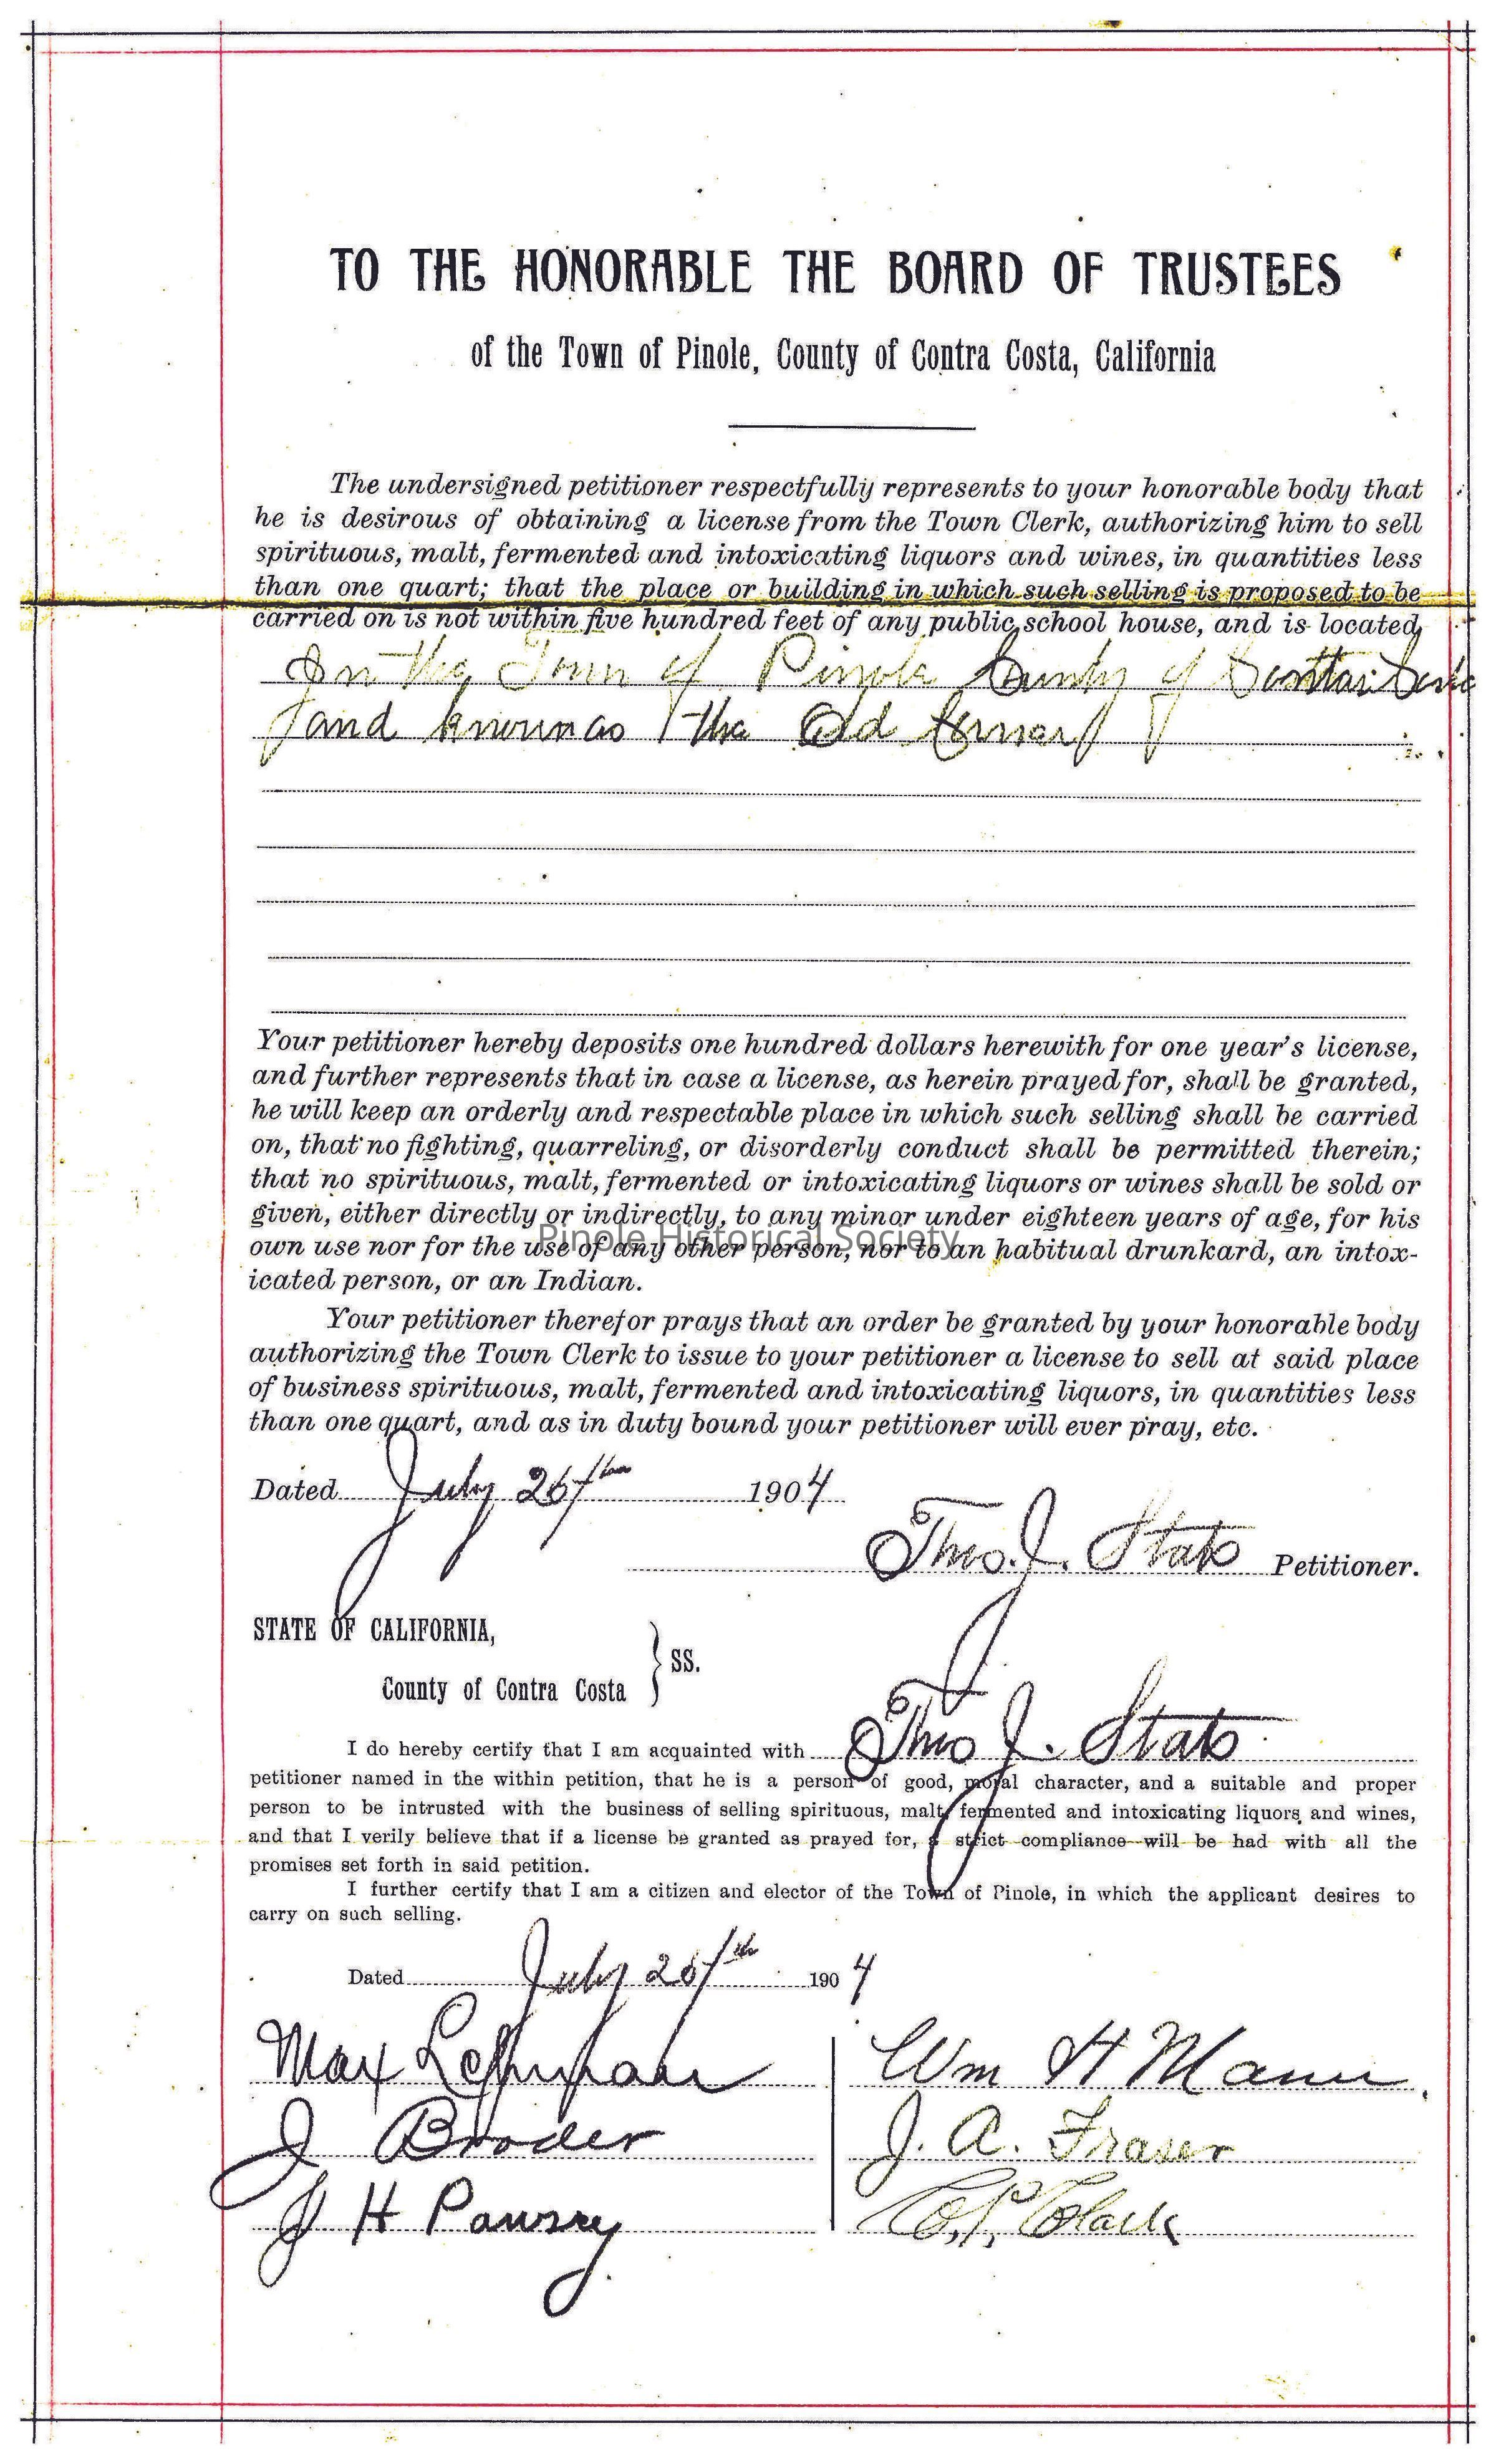 TO THE HONORABLE THE BOARD OF TRUSTEES
of the Town of Pinole, County of Contra Costa, California
The undersigned petitioner respectfully represents to your honorable body that
he is desirous of obtaining a license from the Town Clerk, authorizing him to sell
spirituous, malt, fermented and intoxicating liquors and wines, in quantities less
than one quart; that the place or building in which such selling is proposed to be
carried on is not within five hundred feet of any public school house, and is located
In the Town of Pinole County of
and known as the Old
Your petitioner hereby deposits one hundred dollars herewith for one year's license,
and further represents that in case a license, as herein prayed for, shall be granted,
he will keep an orderly and respectable place in which such selling shall be carried
on, that no fighting, quarreling, or disorderly conduct shall be permitted therein;
that no spirituous, malt, fermented or intoxicating liquors or wines shall be sold or
given, either directly or indirectly, to any minor under eighteen years of age, for his
Pinole Historical Society
own use nor for the use of any other person, nor to an habitual drunkard, an intox-
icated person, or an Indian.
Your petitioner therefor prays that an order be granted by your honorable body
authorizing the Town Clerk to issue to your petitioner a license to sell at said place
of business spirituous, malt, fermented and intoxicating liquors, in quantities less
than one quart, and as in duty bound your petitioner will ever pray, etc.
Dated July 1904
Thos. J. Stats Petitioner.
STATE OF CALIFORNIA,
SS.
County of Contra Costa
I do hereby certify that I am acquainted with Thos J. Stats
petitioner named in the within petition, that he is a person of good, moral character, and a suitable and proper
person to be intrusted with the business of selling spirituous, malt, fermented and intoxicating liquors and wines,
and that I verily believe that if a license be granted as prayed for, a strict compliance will be had with all the
promises set forth in said petition.
I further certify that I am a citizen and elector of the Town of Pinole, in which the applicant desires to
carry on such selling.
Dated July 1904
Max
Wm H Mann
J Broder
J. A. Fraser
J H Pawsey